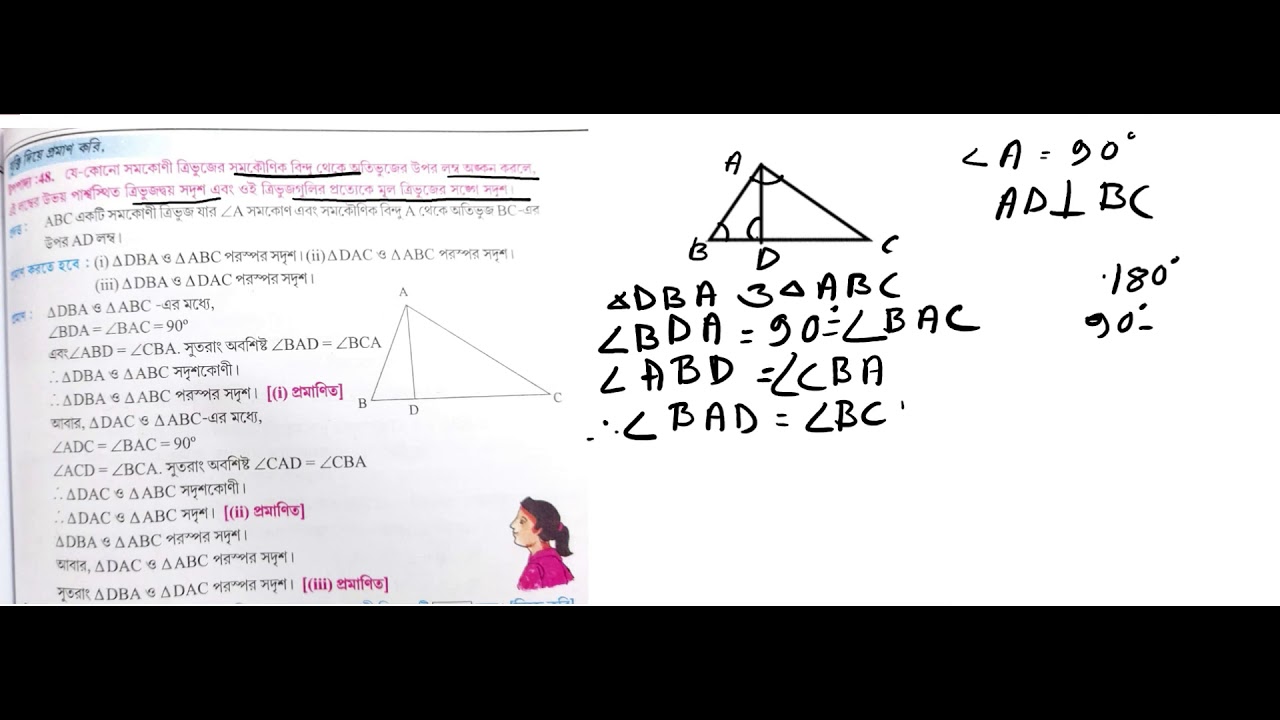 যুক্তি দিয়ে প্রমাণ করি,
উপপাদ্য :48. যে-কোনো সমকোণী ত্রিভুজের সমকৌণিক বিন্দু থেকে অতিভুজের উপর লম্ব অঙ্কন করলে,
এই লম্বের উভয় পার্শ্বস্থিত ত্রিভুজদ্বয় সদৃশ এবং ওই ত্রিভুজগুলির প্রত্যেকে মূল ত্রিভুজের সঙ্গে সদৃশ।
ABC একটি সমকোণী ত্রিভুজ যার ∠A সমকোণ এবং সমকৌণিক বিন্দু A থেকে অতিভুজ BC-এর
উপর AD লম্ব।
প্রমাণ করতে হবে : (i) △DBA ও △ABC পরস্পর সদৃশ। (ii) △DAC ও △ABC পরস্পর সদৃশ।
(iii) △DBA ও △DAC পরস্পর সদৃশ।
প্রমাণ : △DBA ও △ABC -এর মধ্যে,
∠BDA = ∠BAC = 90°
এবং ∠ABD = ∠CBA. সুতরাং অবশিষ্ট ∠BAD = ∠BCA
∴ △DBA ও △ABC সদৃশকোণী।
∴ △DBA ও △ABC পরস্পর সদৃশ। [(i) প্রমাণিত]
আবার, △DAC ও △ABC-এর মধ্যে,
∠ADC = ∠BAC = 90°
∠ACD = ∠BCA. সুতরাং অবশিষ্ট ∠CAD = ∠CBA
∴ △DAC ও △ABC সদৃশকোণী।
∴ △DAC ও △ABC সদৃশ। [(ii) প্রমাণিত]
△DBA ও △ABC পরস্পর সদৃশ।
আবার, △DAC ও △ABC পরস্পর সদৃশ।
সুতরাং △DBA ও △DAC পরস্পর সদৃশ। [(iii) প্রমাণিত]
A
B
D
C
A
B
D
C
∠A = 90°
AD⊥BC
△DBA ও △ABC
∠BDA = 90° = ∠BAC
∠ABD = ∠CBA
∴ ∠BAD = ∠BC
180°
90°-